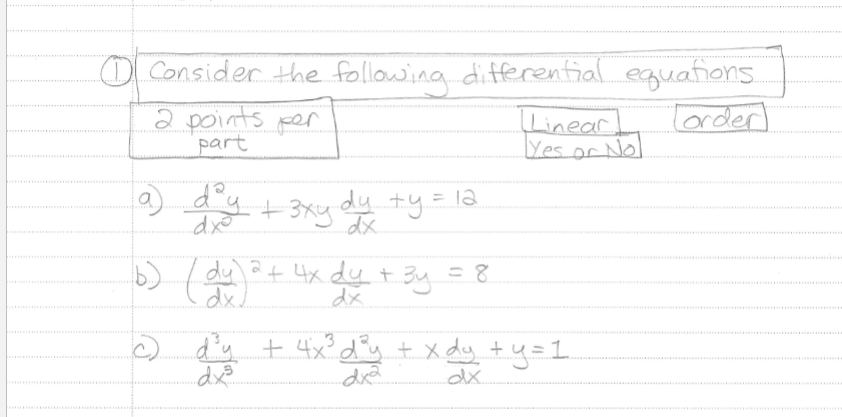 ① Consider the following differential equations
2 points per part
Linear Yes or No
order
a) d²y/dx² + 3xy dy/dx + y = 12
b) (dy/dx)² + 4x dy/dx + 3y = 8
c) d³y/dx³ + 4x³ d²y/dx² + x dy/dx + y = 1